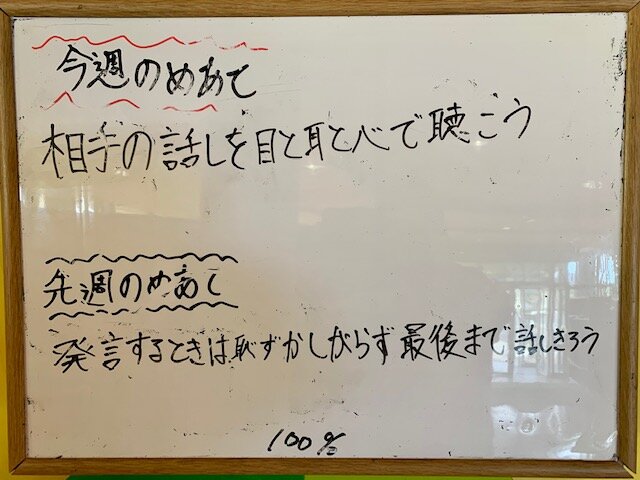 今週のめあて
相手の話しを目と耳と心で聴こう
先週のめあて
発言するときは恥ずかしがらず最後まで話しきろう
100%